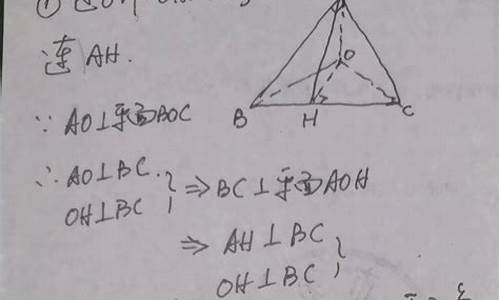 连AH.
∵ AO⊥平面BOC
∴ AO⊥BC
OH⊥BC } ⇒ BC⊥平面AOH
⇒ AH⊥BC
OH⊥BC }
O
B H C